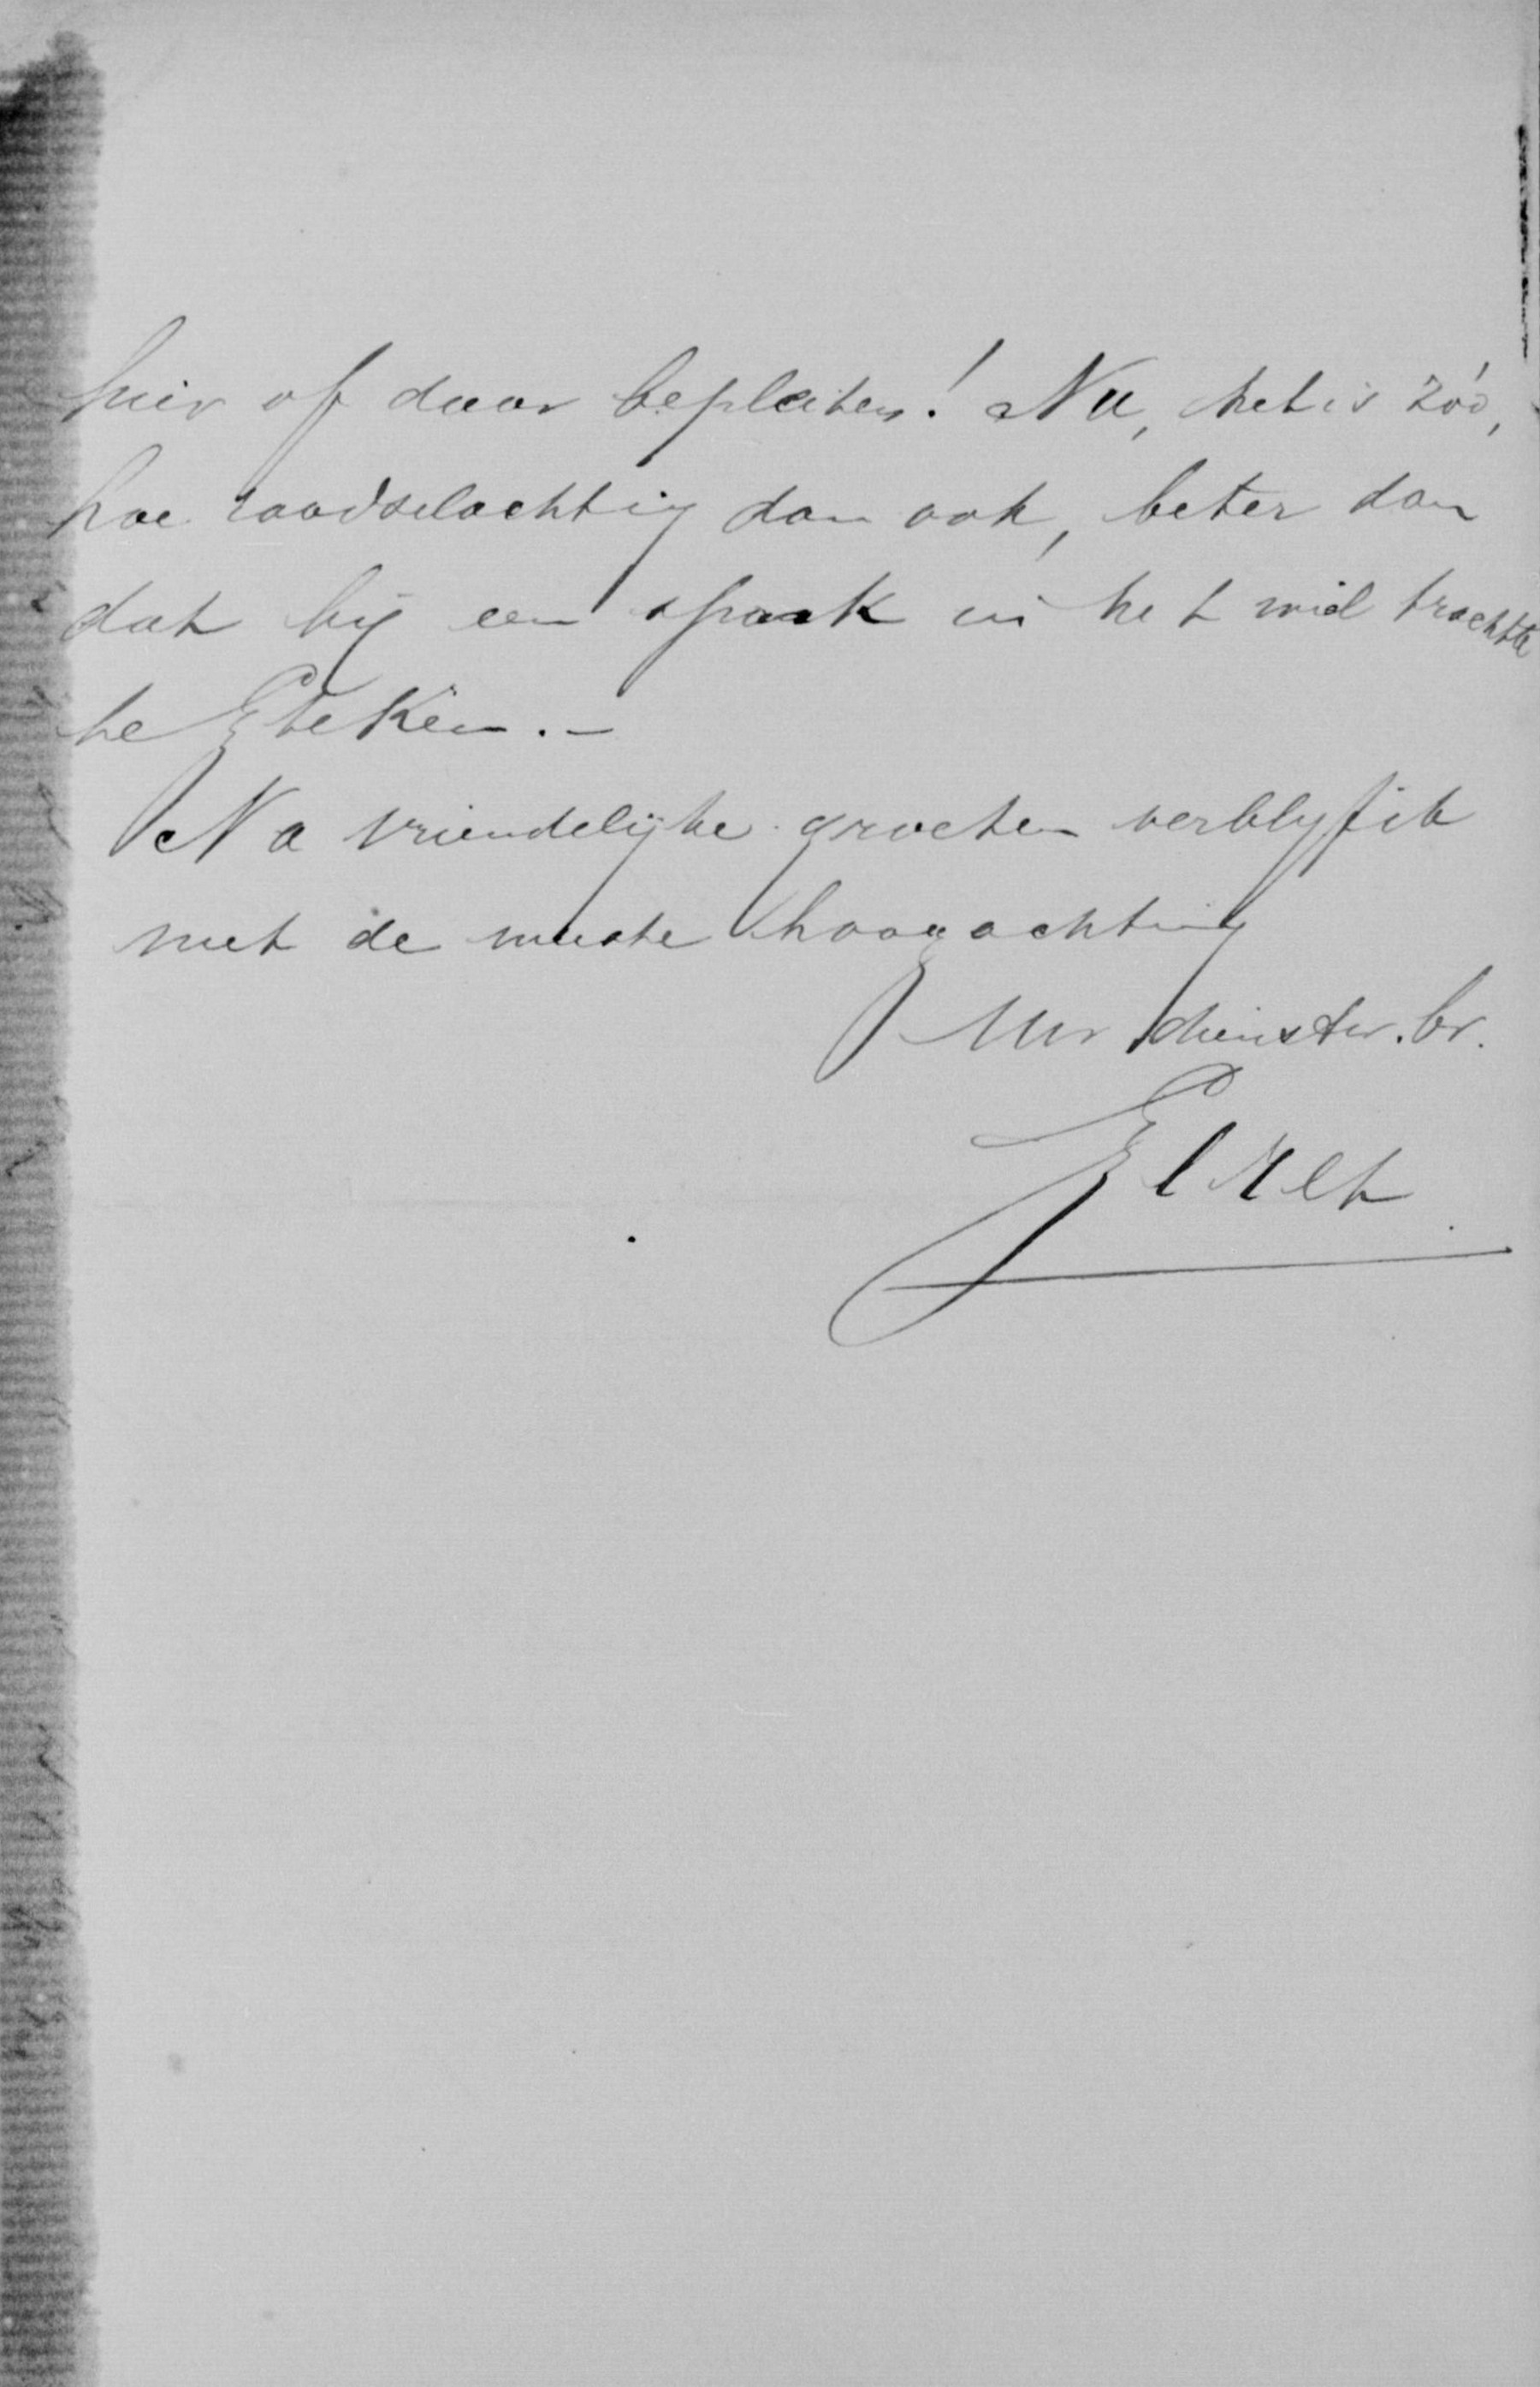 hier of daar bepleiten! Nu, het is zóó,
hoe raadselachtig dan ook, beter dan
dat hij een spaak in het wiel trachtte
te steken. –
Na vriendelijke groeten verblijf ik
met de meeste hoogachting
Uw dienstw. br.